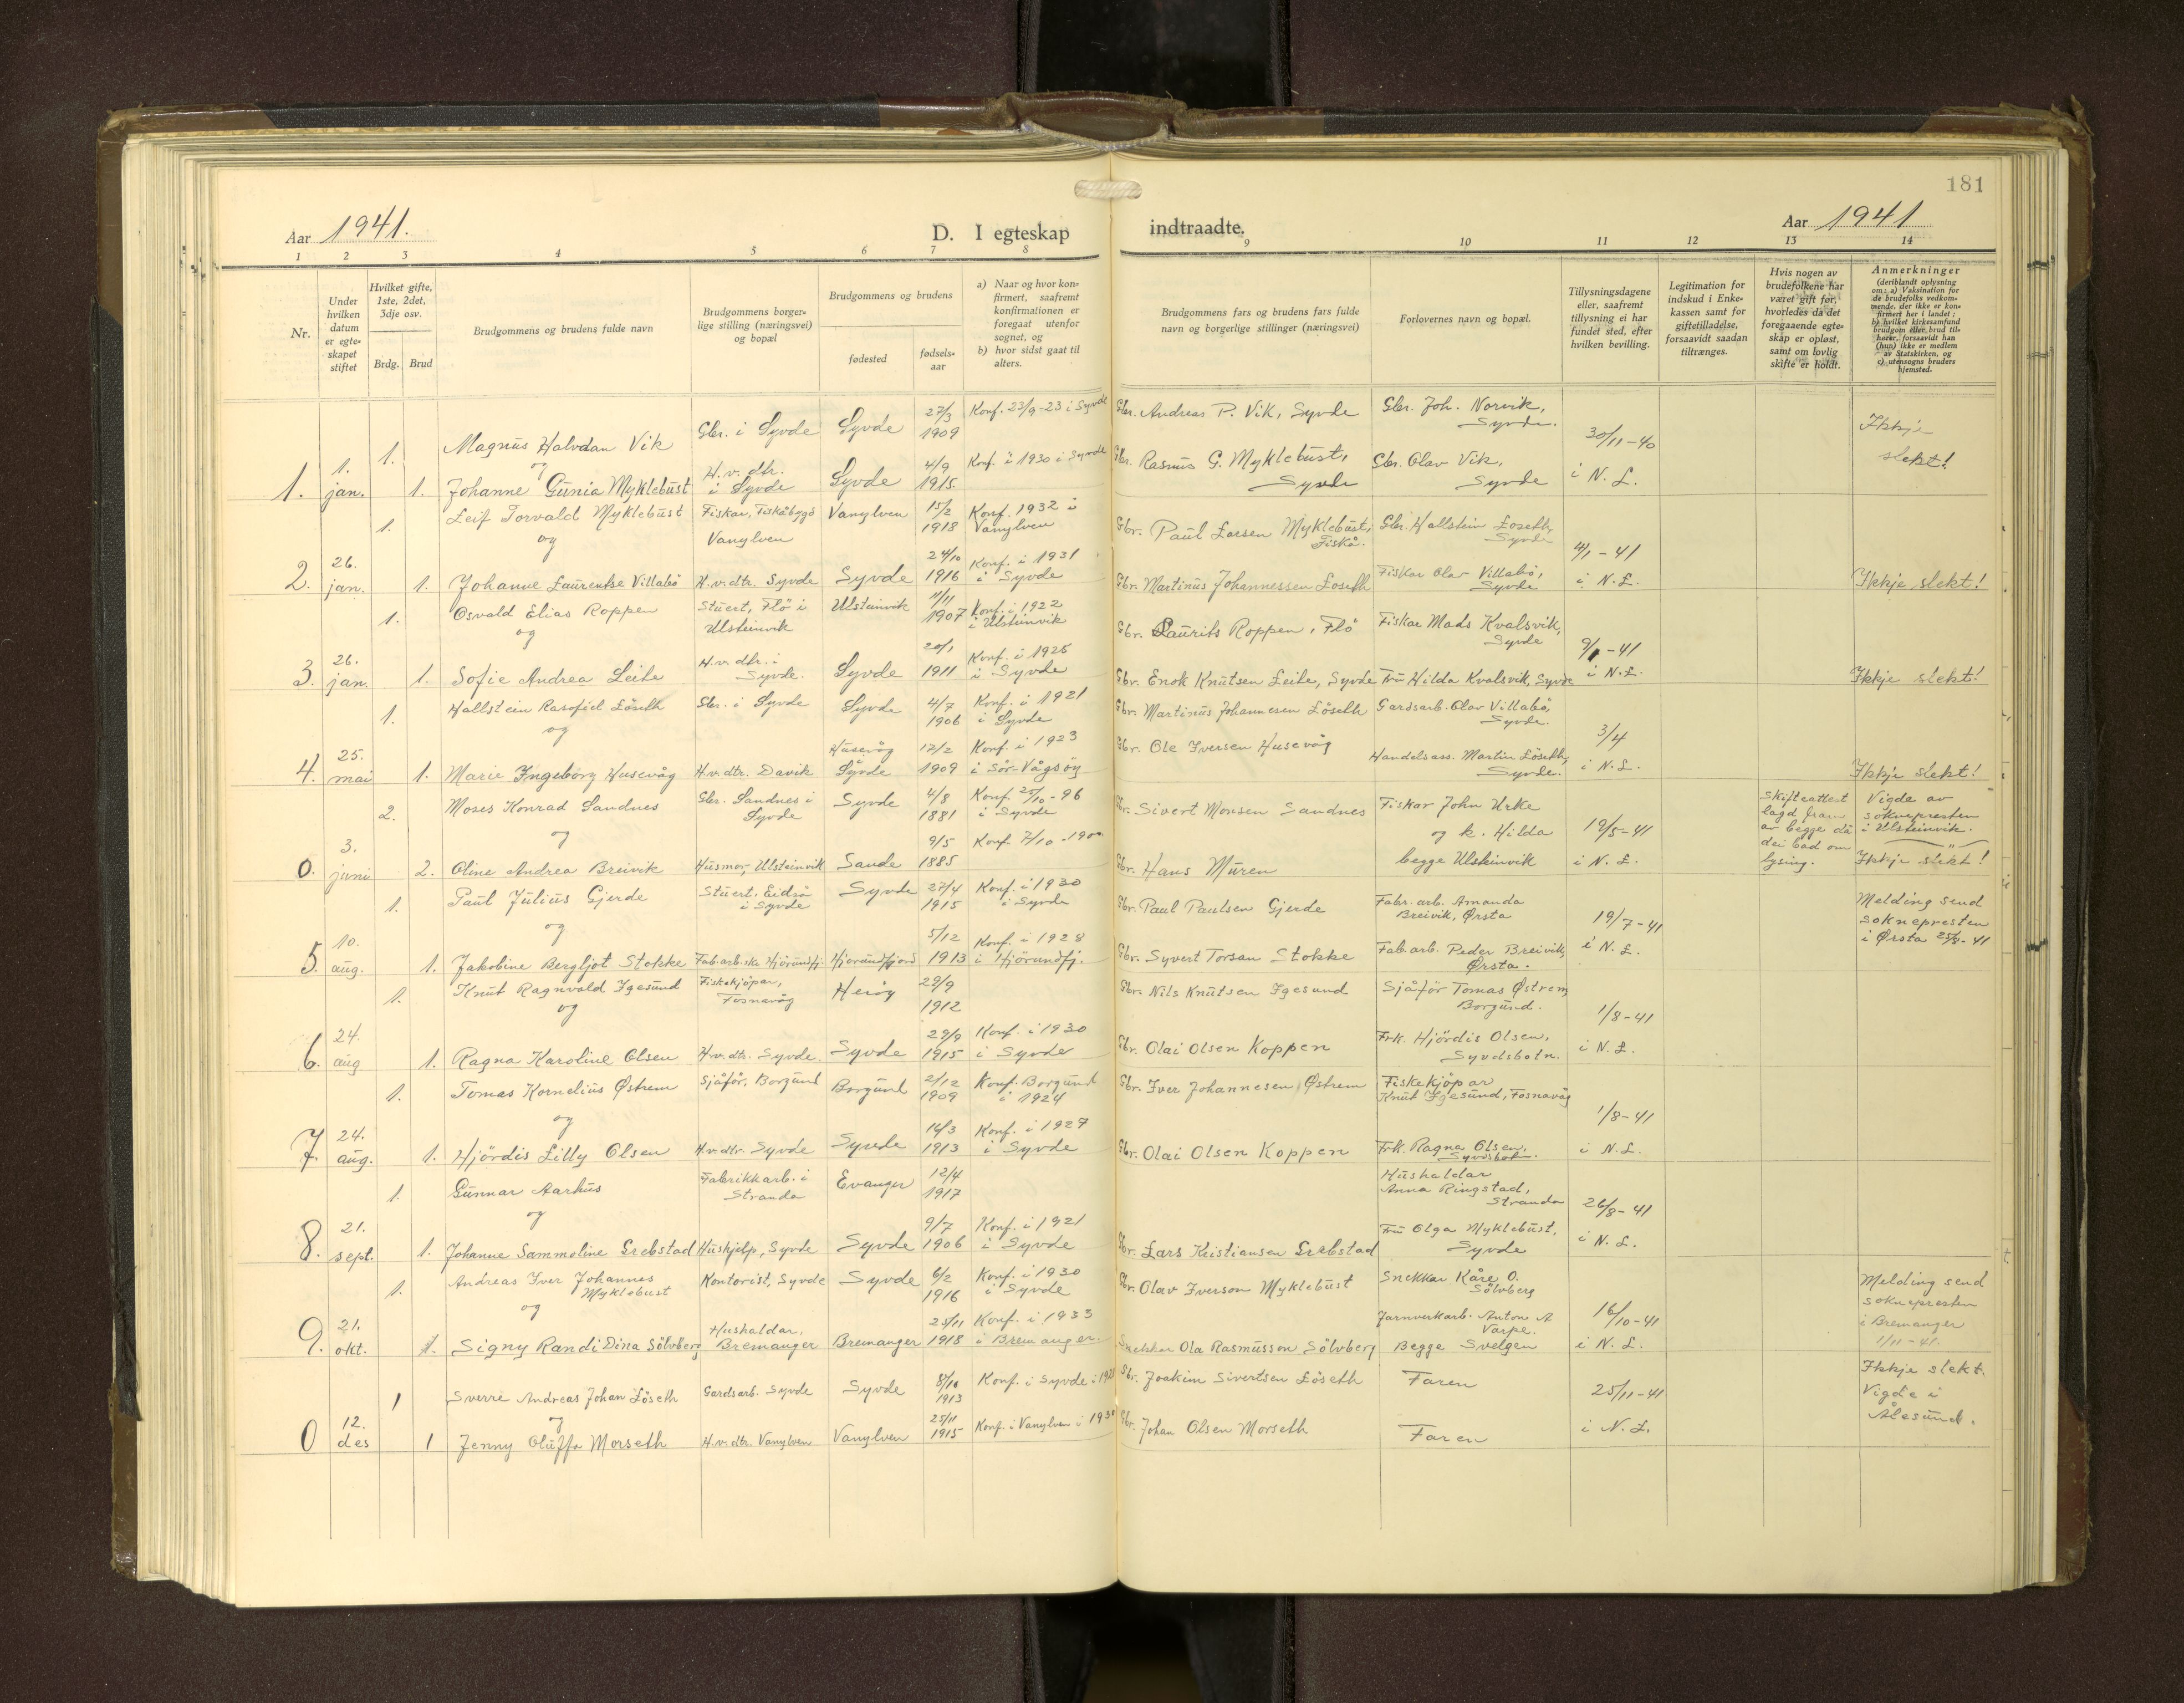 181
Aar 1941.
D. I egteskap indtraadte.
Aar 1941
1 2 3 4 5 6 7 8 9 10 11 12 13 14
Nr.
Under
hvilken
datum
er egte-
skapet
stiftet
Hvilket gifte,
1ste, 2det,
3dje osv.
Brdg. Brud
Brudgommens og brudens fulde navn
Brudgommens borger-
lige stilling (næringsvei)
og bopæl
Brudgommens og brudens
fødested
fødsels-
aar
a) Naar og hvor kon-
firmert, saafremt
konfirmationen er
foregaat utenfor
sognet, og
b) hvor sidst gaat til
alters.
Brudgommens fars og brudens fars fulde
navn og borgerlige stillinger (næringsvei)
Forlovernes navn og bopæl.
Tillysningsdagene
eller, saafremt
tillysning ei har
fundet sted, efter
hvilken bevilling.
Legitimation for
indskud i Enke-
kassen samt for
giftetilladelse,
forsaavidt saadan
tiltrænges.
Hvis nogen av
brudefolkene har
været gift før,
hvorledes da det
foregaaende egte-
skap er opløst,
samt om lovlig
skifte er holdt.
Anmerkninger
(deriblandt oplysning
om: a) Vaksination for
de brudefolks vedkom-
mende, der ikke er kon-
firmert her i landet;
b) hvilket kirkesamfund
brudgom eller brud til-
hører, forsaavidt han
(hun) ikke er medlem
av Statskirken, og
c) utensogns bruders
hjemsted.
1. 1. jan.
1. Magnus Halvdan Vik Gbr. i Syvde Syvde 27/3 1909 Konf. 23/9-23 i Syvde Gbr. Andreas P. Vik, Syvde Gbr. Joh. Norvik, Syvde.
og
1. Johanne Gunia Myklebust H.v. dtr. i Syvde Syvde 4/9 1915. Konf. i 1930 i Syvde Gbr. Rasmus G. Myklebust, Syvde Gbr. Olav Vik, Syvde
30/11-40 i N. L.
Ikkje slekt!
2. 26. jan.
1. Leif Torvald Myklebust Fiskar, Fiskåbygd Vanylven Vanylven 15/2 1918 Konf. 1932 i Vanylven Gbr. Paul Larsen Myklebust, Fiskå. Gbr. Hallstein Løseth, Syvde
og
1. Johanne Laurentse Villabø H.v. dtr. Syvde Syvde 24/10 1916 Konf. i 1931 i Syvde Gbr. Martinus Johannessen Løseth Fiskar Olav Villabø, Syvde
4/1-41 i N. L.
Ikkje slekt!
3. 26. jan.
1. Osvald Elias Roppen Stuert, Flø i Ulsteinvik Ulsteinvik 11/11 1907 Konf. i 1922 i Ulsteinvik Gbr. Laurits Roppen, Flø Fiskar Mads Kvalsvik, Syvde
og
1. Sofie Andrea Leite H.v. dtr. i Syvde. Syvde 20/1 1911 Konf. i 1925 i Syvde Gbr. Enok Knutsen Leite, Syvde Fru Hilda Kvalsvik, Syvde
9/1-41 i N. L.
Ikkje slekt!
4. 25. mai
1. Hallstein Rasofiel Løseth Gbr. i Syvde Syvde 4/7 1906 Konf. i 1921 i Syvde Gbr. Martinus Johannesen Löseth Gardsarb. Olav Villabø, Syvde.
og
1. Marie Ingeborg Husevåg H.v. dtr. Davik Husevåg Syvde 12/2 1909 Konf. i 1923 i Sør-Vågsøy Gbr. Ole Iversen Husevåg Handelsass. Martin Löseth, Syvde.
3/4 i N. L.
Ikkje slekt!
0. 3. juni
2. Moses Konrad Sandnes Gbr. Sandnes i Syvde Syvde 4/8 1881 Konf. 25/10-96 i Syvde Gbr. Sivert Monsen Sandnes Fiskar John Urke
og
2. Oline Andrea Breivik Husmor, Ulsteinvik Sande 9/5 1885 Konf 7/10 1900 Gbr. Hans Muren og k. Hilda begge Ulsteinvik
19/5-41 i N. L.
Skifteattest lagd fram av begge då dei bad om lysing.
Vigde av sokneprestem i Ulsteinvik. Ikkje slekt!
5. 10. aug.
1. Paul Julius Gjerde Stuert. Eidså i Syvde Syvde 27/4 1915 Konf. i 1930 i Syvde Gbr. Paul Paulsen Gjerde Fabr. arb. Amanda Breivik, Ørsta
og
1. Jakobine Bergljot Stokke Fab.arb.ske Hjörundfj. Hjörundfjord 5/12 1913 Konf. i 1928 i Hjörundfj. Gbr. Syvert Torsan Stokke Fab. arb. Peder Breivik, Ørsta.
19/7-41 i N. L.
Melding send soknepresten i Ørsta 25/8-41
6. 24. aug
1. Knut Ragnvald Igesund Fiskekjöpar, Fosnavåg Herøy 29/9 1912 Gbr. Nils Knutsen Igesund Sjåför Tomas Østrem Borgund.
og
1. Ragna Karoline Olsen H.v. dtr. Syvde. Syvde 29/9 1915 Konf. i 1930 i Syvde Gbr. Olai Olsen Koppen Frk. Hjördis Olsen, Syvdsbotn.
1/8-41 i N. L.
7. 24. aug.
1. Tomas Kornelius Østrem Sjåför, Borgund Borgund 2/12 1909 Konf. Borgund i 1924 Gbr. Iver Johannesen Østrem Fiskekjöpar Knut Igesund, Fosnavåg
og
1. Hjördis Lilly Olsen H.v. dtr. Syvde Syvde 16/3 1913 Konf. i 1927 i Syvde Gbr. Olai Olsen Koppen Frk. Ragna Olsen, Syvdsbotn.
1/8-41 i N. L.
8. 21. sept.
1. Gunnar Aarhus Fabrikkarb. i Stranda Evanger 12/4 1917 Hushaldar Anna Ringstad, Stranda
og
1. Johanne Sammoline Grebstad Huskjelp, Syvde Syvde 9/7 1906 Konf. i 1921 i Syvde Gbr. Lars Kristiansen Grebstad Fru Olga Myklebust, Syvde
26/8-41 i N. L.
9. 21. okt.
1. Andreas Iver Johannes Myklebust Kontorist, Syvde Syvde 6/2 1916 Konf. i 1930 i Syvde Gbr. Olav Iverson Myklebust Snekkar Kåre O. Sölvberg
og
1. Signy Randi Dina Sölvberg Hushaldar, Bremanger Bremanger 25/11 1918 Konf. i 1933 i Bremanger. Snekkar Ola Rasmusson Sölvberg Jarnverkarb. Anton A Varpe. Begge Svelgen
16/10-41 i N. L.
Melding send soknepresten i Bremanger 1/11-41.
0 12. des
1 Sverre Andreas Johan Löseth Gardsarb. Syvde Syvde 8/10 1913 Konf. i Syvde i Gbr. Joakim Sivertsen Löseth Faren
og
1 Jenny Oluffa Morseth H.v. dtr. Vanylven Vanylven 25/11 1915 Konf. i Vanylven i 1930 Gbr. Johan Olsen Morseth Faren
25/11-41 i N. L.
Ikkje slekt. Vigde i Ålesund.